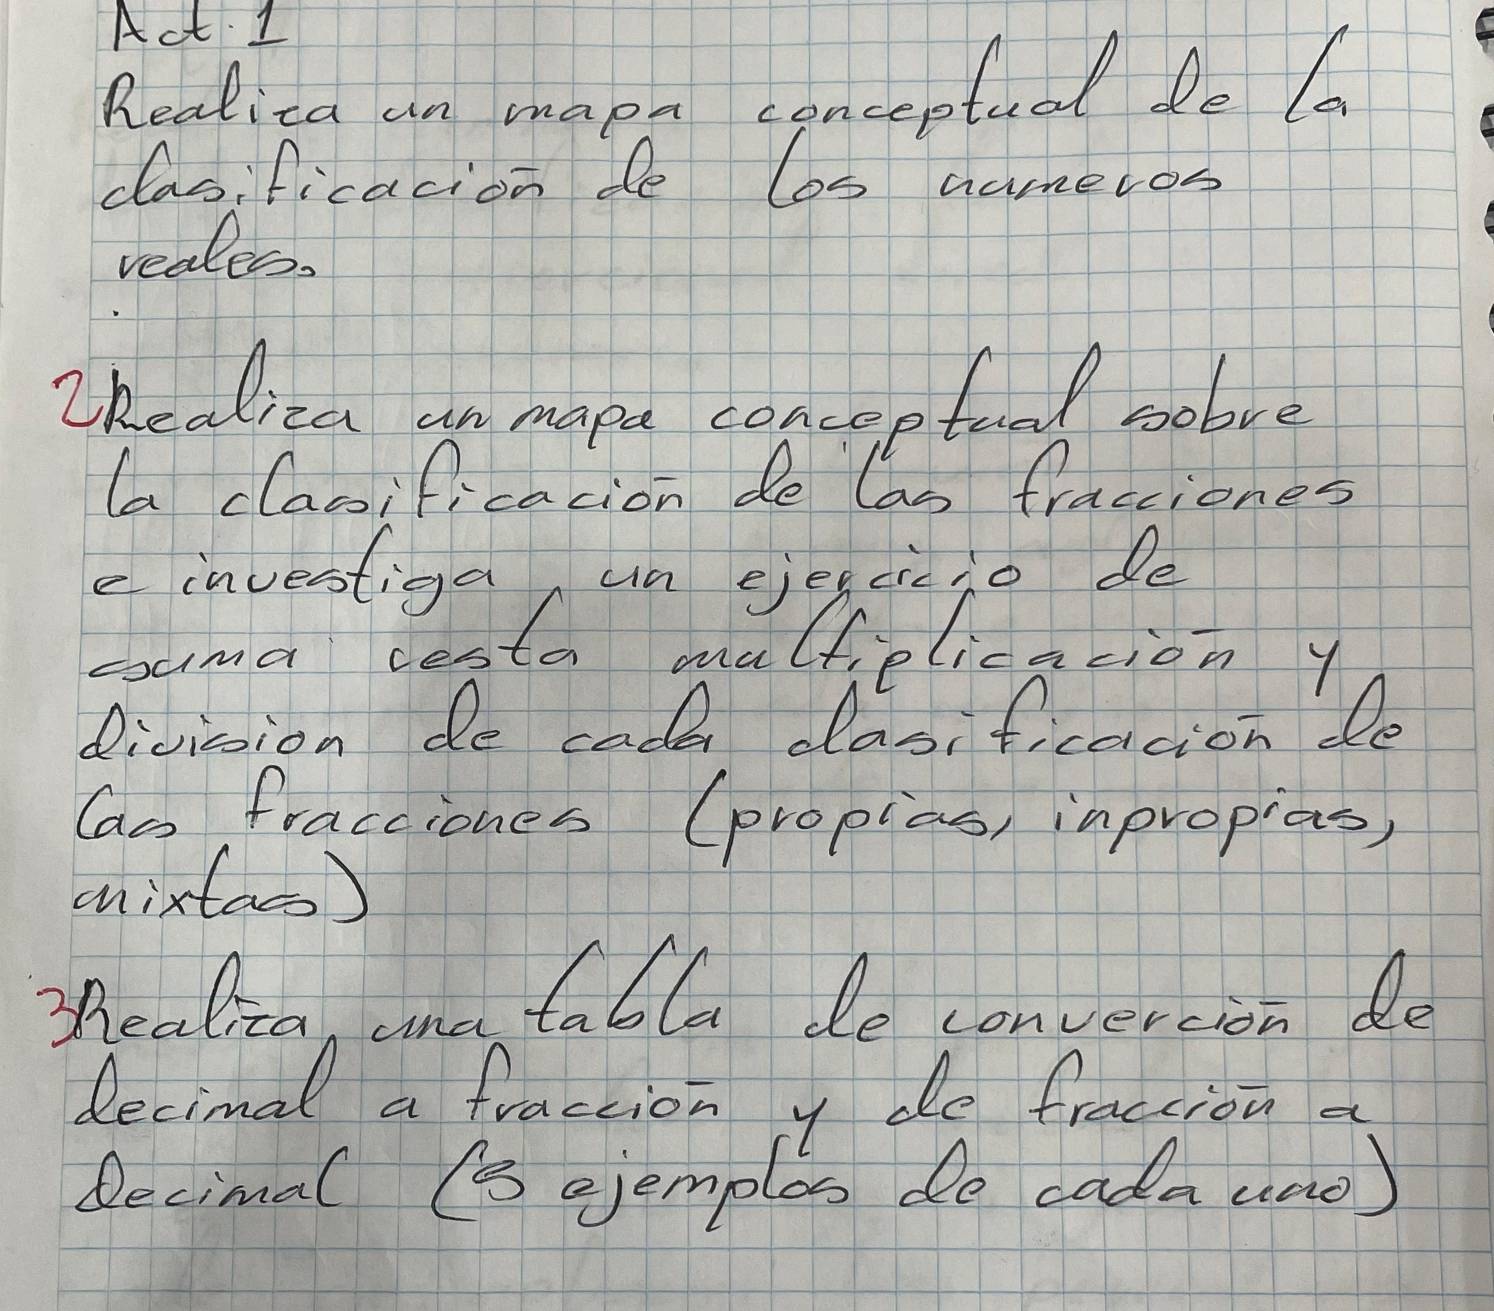 Act. 1
Realiza un mapa conceptual de la
clasificación de los numeros
reales.
2 Realiza un mapa conceptual sobre
la clasificación de las fracciones
e investiga un ejercicio de
suma resta multiplicación y
division de cada clasificación de
las fracciones (propias, inpropias,
mixtas)
3 Realiza una tabla de converción de
decimal a fracción y de fracción a
decimal (5 ejemplos de cada uno)